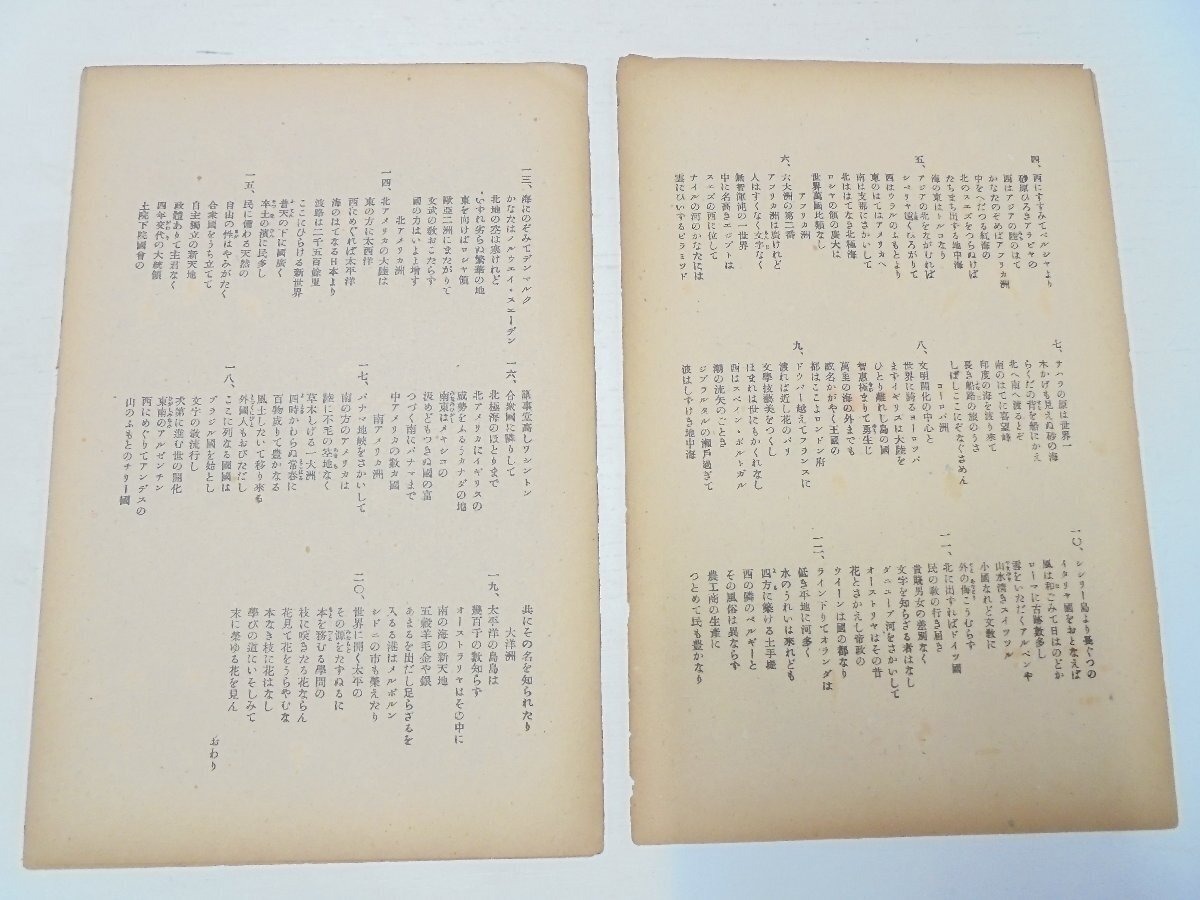 四、西にすすみてペルシャより
砂原ひろきアラビヤの
西はアジアの陸のはて
かなたのぞめばアフリカ洲
中をへだつる紅海の
北のスエズをつらぬけば
たちまち出ずる地中海
海の東はトルコなり
五、アジアの北をながむれば
シベリヤ遠くひろがりて
西はウラルのふもとより
東のはてはアメリカへ
南は支那にさかいして
北ははてなき北極海
ロシヤの領の廣大は
世界萬國比類なし
アフリカ洲
六、六大洲の第二番
アフリカ洲は廣けれど
人はすくなく文字なく
無智渾沌の一世界
中に名高きエジプトは
スエズの西に位して
ナイルの河のかなたには
雲にひいずるピラミツド
七、サハラの原は世界一
木かげも見えぬ砂の海
らくだの背を船にかえ
北へ南へ渡るとぞ
南のはてに喜望峰
印度の海を渡り來て
長き船路の旅のうさ
しばしここにぞなぐさめん
ヨーロッパ洲
八、文明開化の中心と
世界に誇るヨーロッパ
まずイギリスは大陸を
ひとり離れし島の國
智惠極まりて勇生じ
萬里の海の外までも
政名かがやく王國の
都はここよロンドン府
九、ドウバー越えてフランスに
渡れば近し花のパリ
文學技藝美をつくし
ほまれは世にもかくれなし
西はスペイン・ポルトガル
潮の流矢のごとき
ジブラルタルの瀬戸過ぎて
渡はしずけき地中海
一〇、シシリー島より長ぐつの
イタリヤ國をおとなえば
風は和ごみて日はのどか
ローマに古跡數多し
雪をいただくアルペンや
山水清きスイツツル
小國なれど文教に
外の侮こうむらず
一一、北に出ずればドイツ國
民の敎の行き屆き
貴賤男女の差別なく
文字を知らざる者はなし
ダニユーブ河をさかいして
オーストリヤはその昔
花とさかえし帝政の
ウイーンは國の都なり
一二、ライン下りてオランダは
低き平地に河多く
水のうれいは來れども
四方に築ける土手堤
西の隣のベルギーと
その風俗は異ならず
農工商の生產に
つとめて民も豊かなり
一三、海にのぞみてデンマルク
かなたはノルウエイ・スエーデン
北地の空は寒けれど
いずれ劣らぬ繁華の地
東を向けばロシヤ領
歐亞二洲にまたがりて
文武の敎おこたらず
國の力はいよよ増す
北アメリカ洲
一四、北アメリカの大陸は
東の方に太西洋
西にめぐれば太平洋
海のはてなる日本より
波路は二千五百餘里
ここにひらける新世界
普天の下に國廣く
率土の濱に民多し
一五、民に備わる天然の
自由の性はやみがたく
合衆國をうち立てて
自主獨立の新天地
政體ありて主君なく
四年交代の大統領
上院下院國會の
議事堂高しワシントン
一六、合衆國に隣りして
北極海のほとりまで
北アメリカにイギリスの
威勢をふるうカナダの地
南東はメキシコの
汲めどもつきぬ國の富
つづく南にパナマまで
中アメリカの數ヵ國
南アメリカ洲
一七、パナマ地峽をさかいして
南の方のアメリカは
陸に不毛の空地なく
草木しげる一大洲
四時かわらぬ常春に
百物成りて豊かなる
風土したいて移り來る
外國人もおびただし
一八、ここに列なる國國は
ブラジル國を始とし
文字の敎流行し
次第に進む世の開化
東南のアルゼンチン
西にめぐりてアンデスの
山のふもとのチリー國
共にその名を知られたり
大洋洲
一九、太平洋の島島は
幾百千の數知らず
オーストラリヤはその中に
南の海の新天地
五穀羊毛金や銀
あまるを出だし足らざるを
入るる港はメルボルン
シドニの市も榮えたり
二〇、世界に開く太平の
その源をたずぬるに
本を務むる學問の
枝に咲きたる花ならん
花見て花をうらやむな
本なき枝に花はなし
學びの道にいそしみて
末に榮ゆる花を見ん
おわり